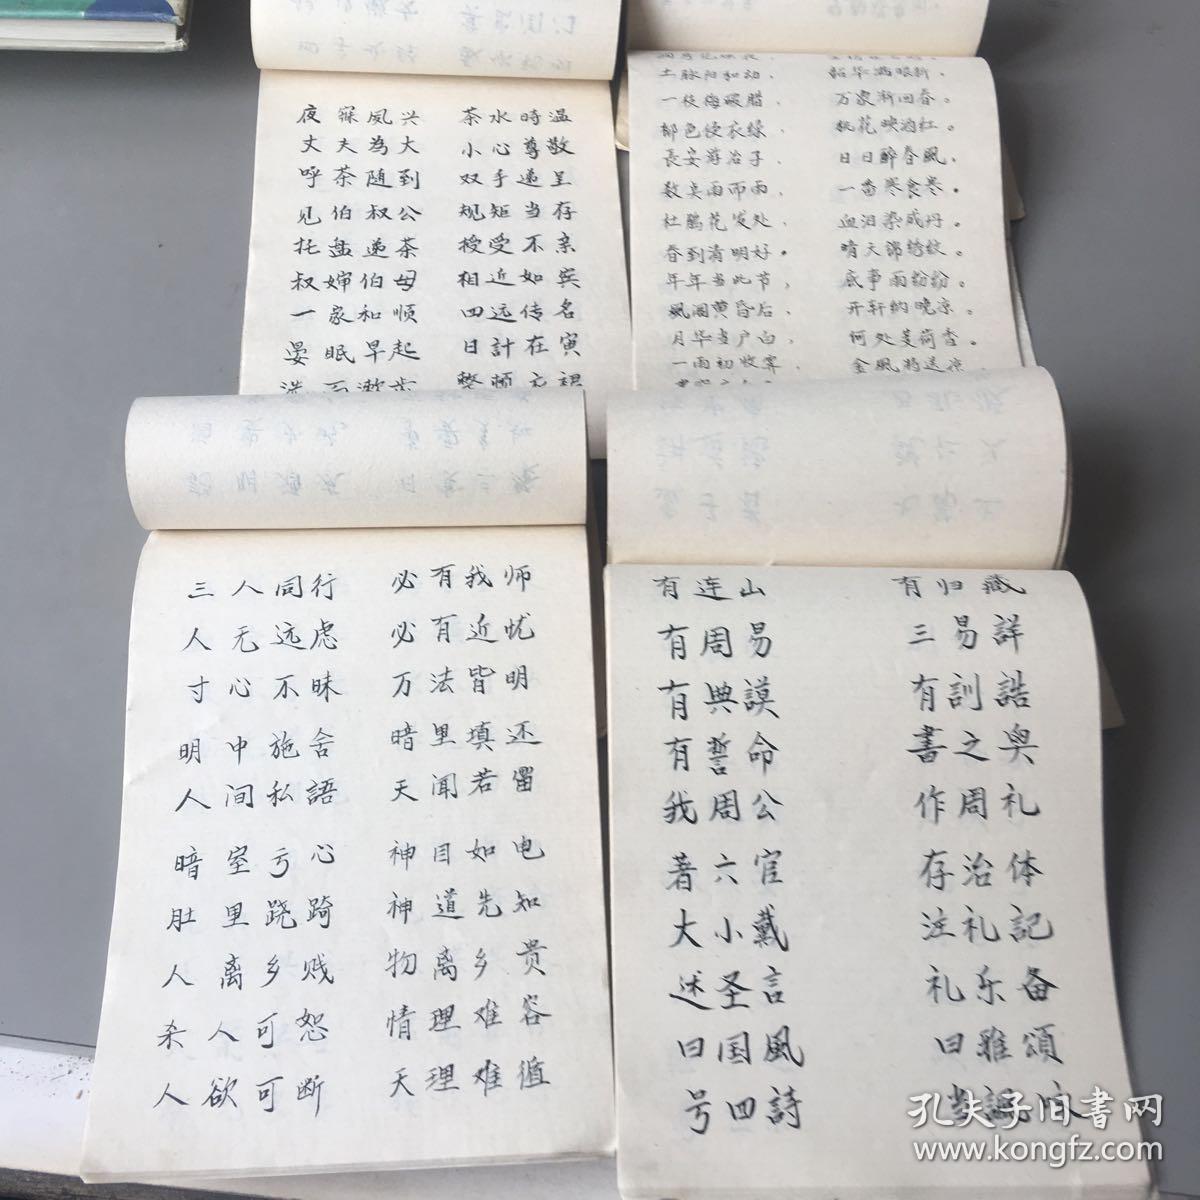 夜寐风兴 茶水時温
丈夫為大 小心尊敬
呼茶随到 双手递呈
见伯叔公 规矩当存
托盘递茶 授受不亲
叔婶伯母 相近如宾
一家和顺 四远传名
晏眠早起 日計在寅
土脉阳和动, 韶华满眼新。
一枝梅破腊, 万象渐回春。
柳色侵衣绿, 桃花映酒红。
長安游冶子, 日日醉春風。
数点雨而雨, 一番寒食寒。
杜鵑花发处, 血泪染成丹。
春到清明好。 晴天锦绣纹。
年年当此节, 底事雨纷纷。
風涸黄昏后, 开轩纳晚凉。
月华当户白, 何处芰荷香。
一雨初收霁, 金風特送凉,
三人同行 必有我师
人无远虑 必有近忧
寸心不昧 万法皆明
明中施舍 暗里填还
人间私語 天闻若雷
暗室亏心 神目如电
肚里跷踦 神道先知
人离乡贱 物离乡贵
杀人可恕 情理难容
人欲可断 天理难循
有连山 有归藏
有周易 三易詳
有典謨 有訓誥
有誓命 書之奥
我周公 作周礼
著六官 存治体
大小戴 注礼記
述圣言 礼乐备
曰国風 曰雅頌
号四詩 当諷咏
孔夫子旧書网
www.kongfz.com